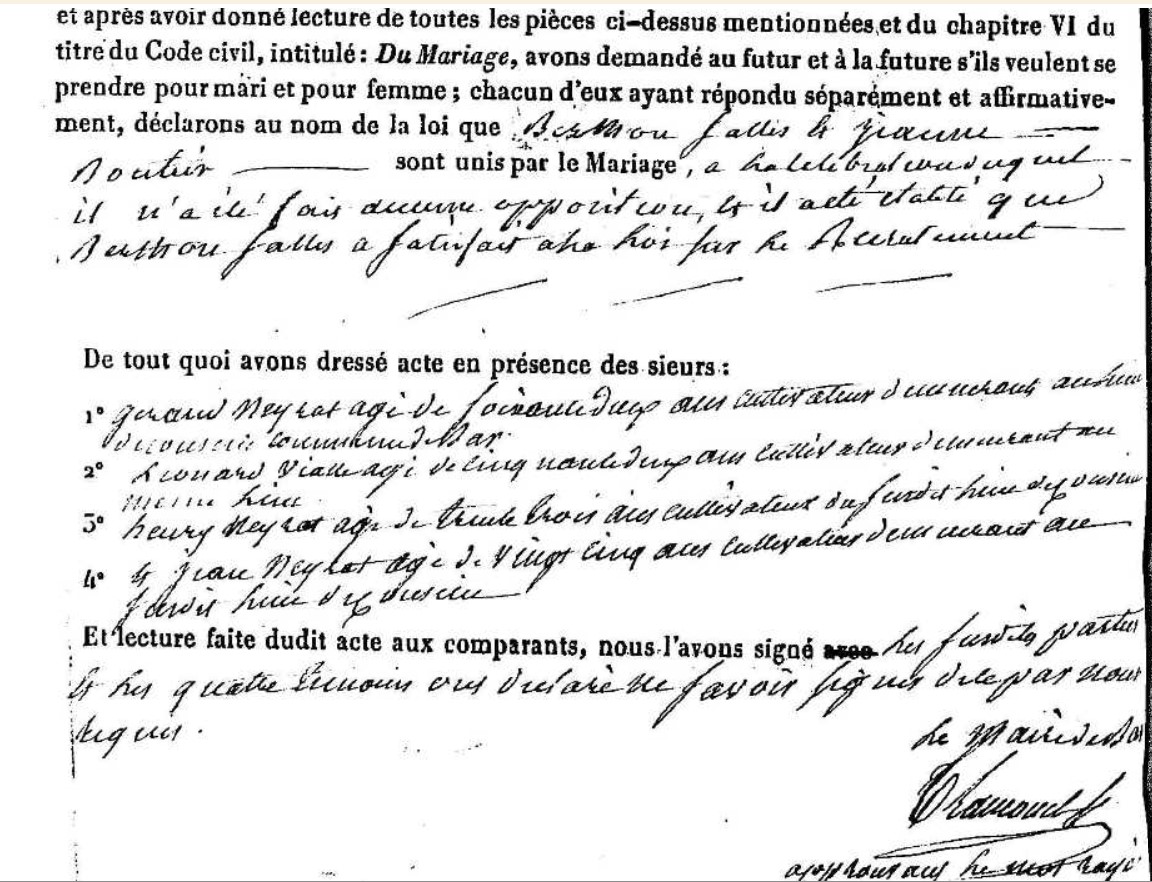 et après avoir donné lecture de toutes les pièces ci-dessus mentionnées, et du chapitre VI du
titre du Code civil, intitulé : Du Mariage, avons demandé au futur et à la future s'ils veulent se
prendre pour mari et pour femme ; chacun d'eux ayant répondu séparément et affirmative-
ment, déclarons au nom de la loi que Berthou et jeanne
sont unis par le Mariage, a la
il n'a été fais aucune opposition, et il a été que
Berthou a satisfait a la loi sur le Recrutement
De tout quoi avons dressé acte en présence des sieurs :
1° gerard Neyrat agé de soixante deux ans cultivateur demeurant au lieu
commune de Bar
2° Léonard Vialle agé de cinquante deux ans cultivateur demeurant au
meme lieu
3° henry Neyrat agé de trente trois ans cultivateur du susdit lieu
4° et jean Neyrat agé de vingt cinq ans cultivateur demeurant au
susdit lieu
Et lecture faite dudit acte aux comparants, nous l'avons signé avec les susdites parties
et les quatre témoins ont declaré ne savoir signer de ce par nous
requis.
le Maire de Bar
approuvant le mot rayé